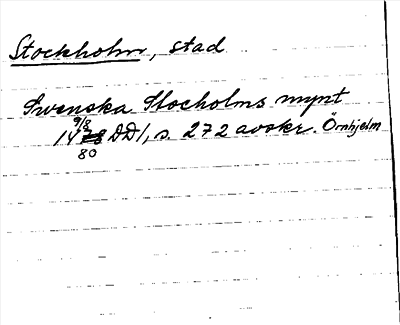 Stockholm, stad
Svenska Stocholms mynt
9/8
1478 DD1, s. 272 avskr. Örnhjelm
80